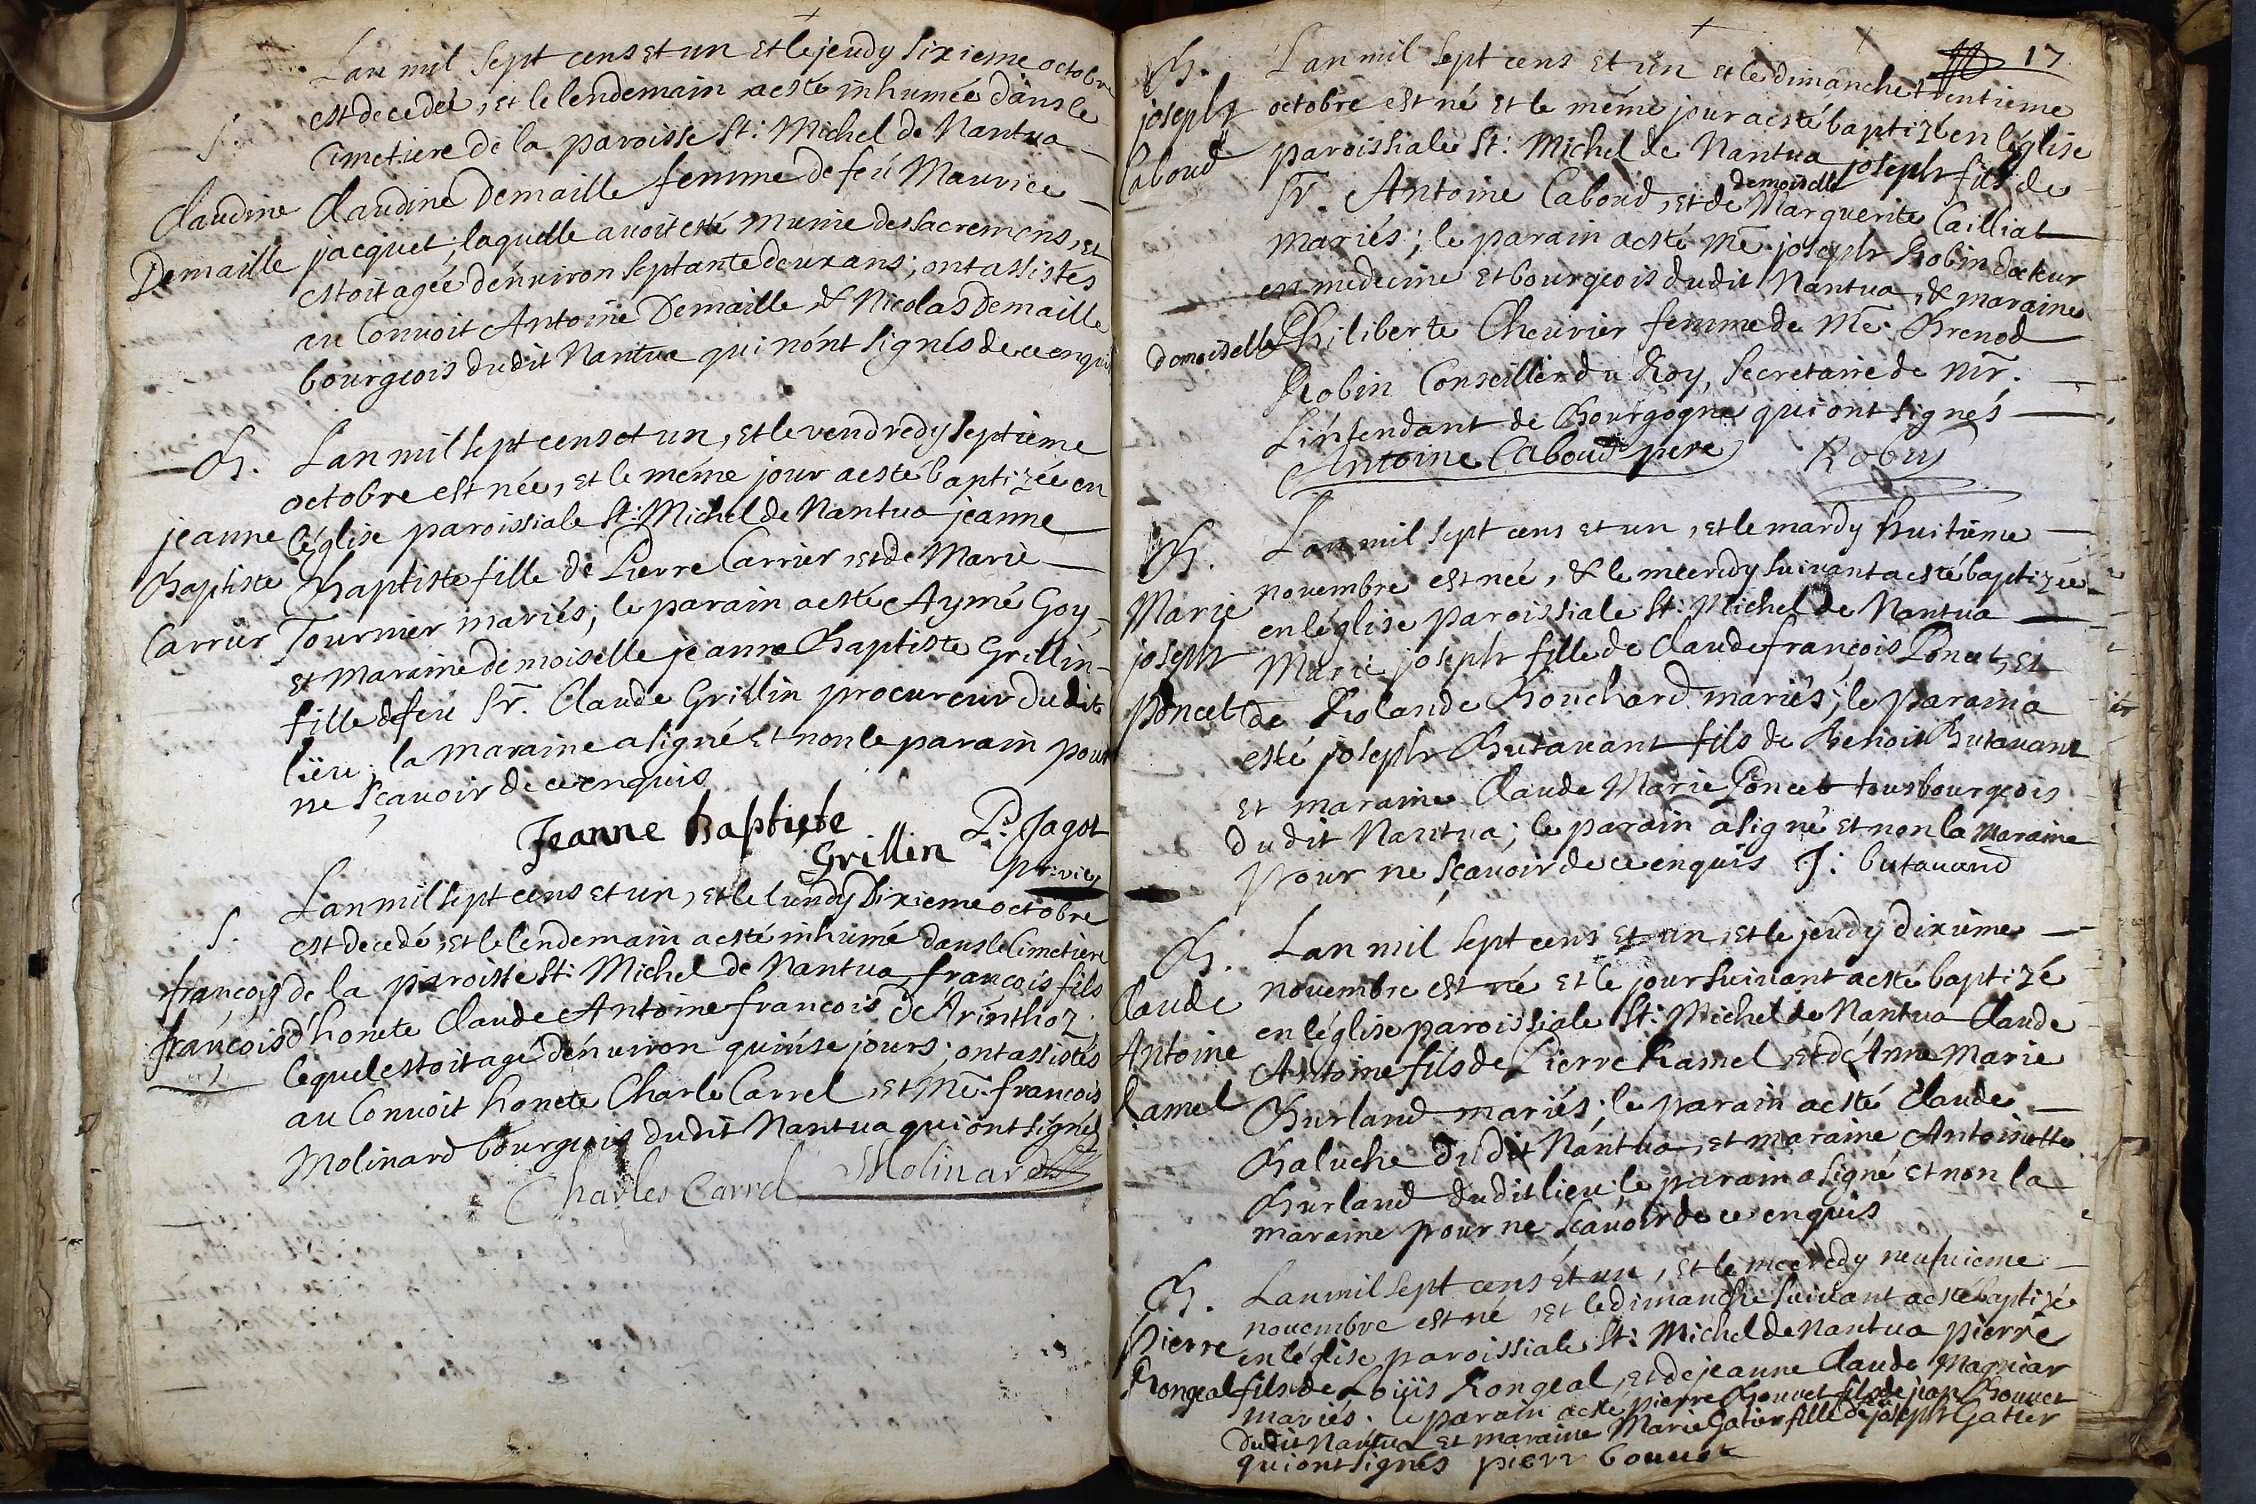 Lan mil sept cens et un et le jeudy sixieme octobre
est decedeé, et le lendemain a esté inhumée dans le
S. Cimetiere de la paroisse St: Michel de Nantua
Claudine Claudine Demaille femme de feu Maurice
Demaille jacquet; laquelle avoit esté munie des sacremens, et
estoit agée d'environ septante deux ans; ont assistés
au Convoit Antoine Demaille & Nicolas Demaille
bourgeois dudit Nantua qui n'ont signés de ce enquis
B. Lan mil sept cens et un, et le vendredy septieme
octobre est née, et le méme jour a esté baptizée en
jeanne l'église paroissiale St: Michel de Nantua jeanne
Baptiste Baptiste fille de Pierre Carrier, et de Marie
Carrier Tournier mariés; le parain a esté Aymé Goy,
et Maraine demoiselle jeanne Baptiste Grillin
fille de feu Sr. Claude Grillin procureur dudit
lieu; la maraine a signé et non le parain pour
ne sçavoir de ce enquis
Jeanne baptiste
Grillin P: Jagot
pr: vic
Lan mil sept cens et un, et le lundy Dixieme octobre
S. est decedé, et le lendemain a esté inhumé dans le Cimetiere
françois de la paroisse St: Michel de Nantua françois fils
françois d'honete Claude Antoine françois d'Arinthoz;
lequel estoit agé d'environ quinse jours; ont assistés
au Convoit honete Charle Carrel, et Me. françois
Molinard bourgeois dudit Nantua qui ont signés
Charles Carrel Molinard
17
B. Lan mil sept cens et un et le dimanche trentieme
joseph octobre est né et le méme jour a esté baptizé en l'église
Caboud paroissiale St: Michel de Nantua joseph fils de
Sr. Antoine Caboud, et de demoiselle Marguerite Cailliat
mariés; le parain a esté Me. joseph Robin docteur
en medecine et bourgeois dudit Nantua, & maraine
demoiselle Philiberte Chevrier femme de Me. Brenod
Robin Conseiller du Roy, Secretaire de Mr.
L'intendant de Bourgogne qui ont signés
Antoine Caboud pere Robin
Lan mil sept cens et un, et le mardy huitieme
B. novembre est née, & le mecredy suivant a esté baptizée
Marie en l'église paroissiale St: Michel de Nantua
joseph Marie joseph fille de Claude françois Poncet, et
poncet de Rolande Bouchard mariés; le parain a
esté joseph Butavant fils de Benoit Butavant
et maraine Claude Marie Poncet tous bourgeois
dudit Nantua; le parain a signé et non la Maraine
pour ne sçavoir de ce enquis J: butavand
B. Lan mil sept cens et un, et le jeudy dixieme
Claude novembre est né et le jour suivant a esté baptizé
Antoine en l'église paroissiale St: Michel de Nantua Claude
Ramel Antoine fils de Pierre Ramel, et d'Anne Marie
Burland mariés; le parain a esté Claude
Baluche dudit Nantua, et maraine Antoinette
Burland dudit lieu; le parain a signé et non la
maraine pour ne sçavoir de ce enquis
B. Lan mil sept cens et un, et le mecredy neufvieme
novembre est né, et le dimanche suivant a esté baptizé
Pierre en l'église paroissiale St: Michel de Nantua pierre
Rongeal fils de Loüis Rongeal, et de jeanne Claude Magniar
mariés. le parain a esté pierre Bouvet fils de jean Bouvet
dudit Nantua et maraine Marie Gatier fille de feu joseph Gatier
qui ont signés pierr bouvet